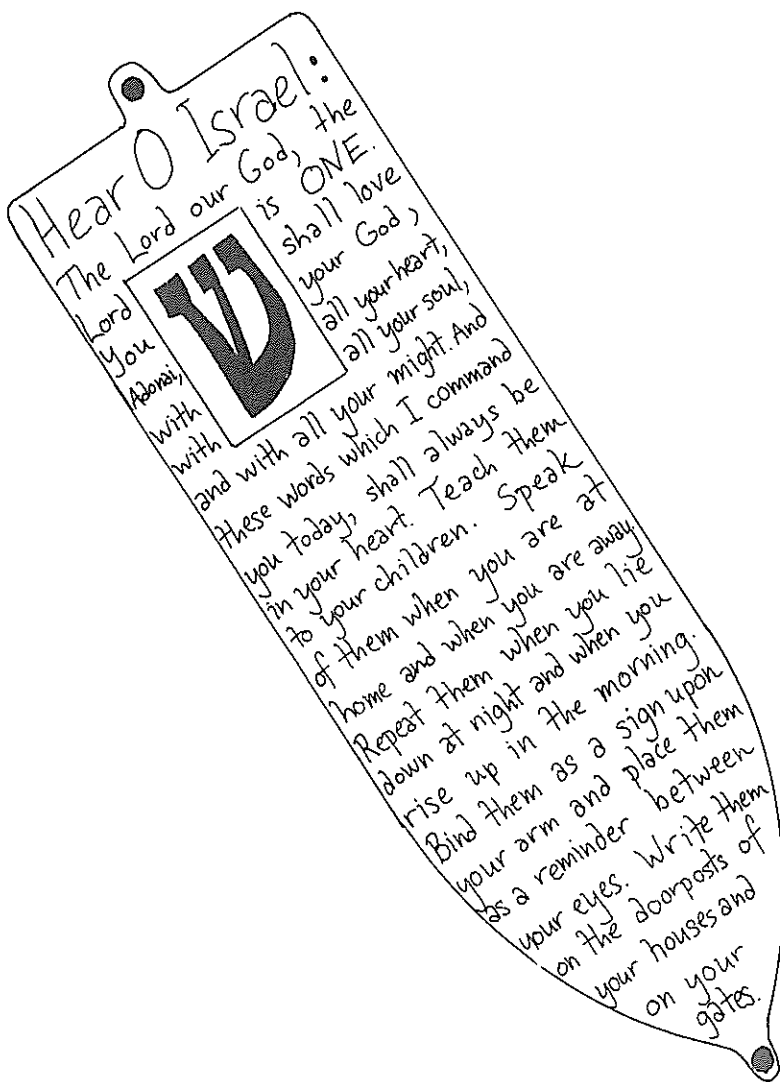 Hear O Israel:
The Lord our God, the
Lord is ONE.
You shall love
Adonai, your God,
with all your heart,
with all your soul,
ש
and with all your might. And
these words which I command
you today, shall always be
in your heart. Teach them
to your children. Speak
of them when you are at
home and when you are away.
Repeat them when you lie
down at night and when you
rise up in the morning.
Bind them as a sign upon
your arm and place them
as a reminder between
your eyes. Write them
on the doorposts of
your houses and
on your
gates.